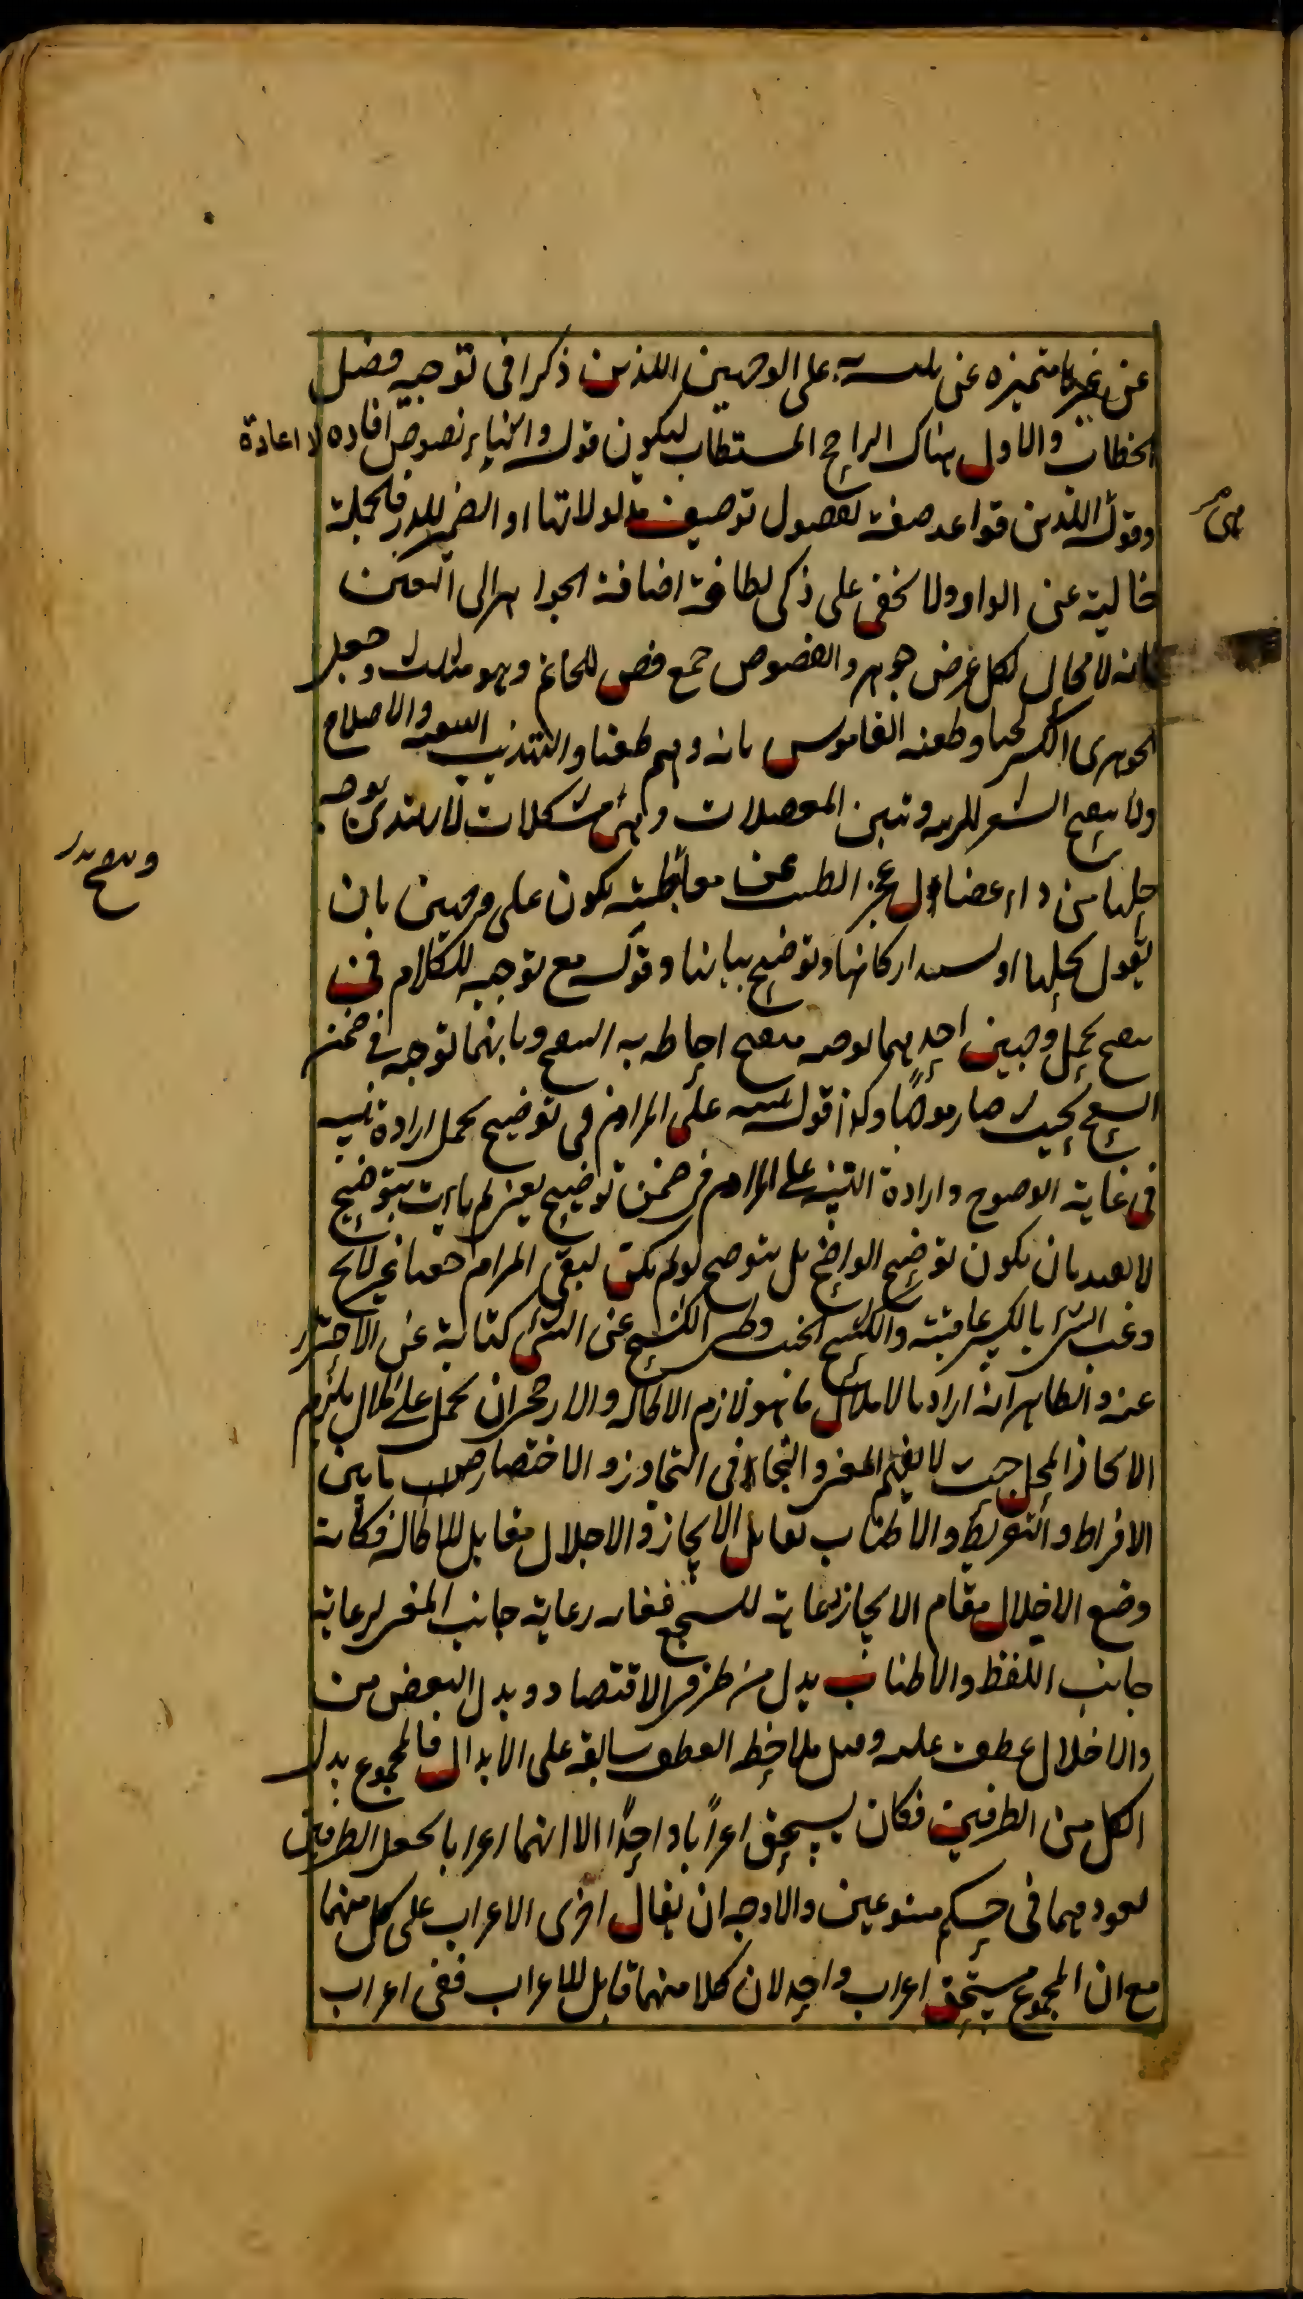 عن غيرها متميزه عن ملتبسه على الوجهين اللذين ذكرا في توجيه فصل
الخطاب والاول هناك الراجح المستطاب ليكون قوله واثناء نصوص افاده لا اعادة
وقوله اللذين قواعد صفة لفصول توصيف مدلولاتها او الضمير للدرر فالجملة
خالية عن الواو ولا يخفى على ذكي لطافة اضافة الجواهر الى اليقين
فانه لا مجال لكل عرض جوهر والفصوص جمع فص للخاتم وهو مثلث وجعل
الجوهرى الكسر لحنا وطعنه القاموس بانه وهم طعنا والتهذيب التنقيه والاصلاح
وتنقيح الشعر وتبيين المعضلات وهى مشكلات لا يهتدى لوجه
حلها من داء عضال عجز الطبيب عن معالجته يكون على وجهين بان
يقول بحلها او اركانها وتوضيح بيانها وقوله مع توجيه للكلام في
تنقيح يحتمل وجهين احدهما توجيه منقح احاطه به التنقيح وثانيهما توجيه في ضمن
التنقيح بحيث صار موضحا وكذا قوله تنبيه على المرام في توضيح يحتمل ارادة تنبيه
في غاية الوضوح وارادة التنبيه على المرام في ضمن توضيح يعنى لم يأت بتوضيح
لا يعتد بان يكون توضيح الواضح بل بتوضيح لو لم يكن لبقى المرام خفيا غير لائح
وغب الشئ بالكسر عاقبته والكشح الجنب وطى الكشح عن الشئ كناية عن الاحتراز
عنه والظاهر انه اراد بالاملال ما هو لازم الاطاله والا رجح ان يحمل على املال يلزم
الايجاز المخل حيث لا يفهم المغزى والتجافى التجاوز والاختصار ما بين
الافراط والتفريط والاطناب تقابل الايجاز والاخلال مقابل للاطاله فكأنه
وضع الاخلال مقام الايجاز رعاية للسجع ففاته رعاية جانب المعنى لرعاية
جانب اللفظ والاطناب بدل من طرفى الاقتصاد وبدل البعض من
والاخلال عطف عليه وقيل ملاحظه العطف سابقه على الابدال فالمجموع بدل
الكل من الطرفين فكان يستحق اعرابا واحدا الا انهما اعربا لجعل الطرفين
فى حكم متبوعين والاوجه ان يقال اجرى الاعراب على كل منهما
مع ان المجموع مستحق اعراب واحد لان كلا منهما قابل للاعراب ففى اعراب